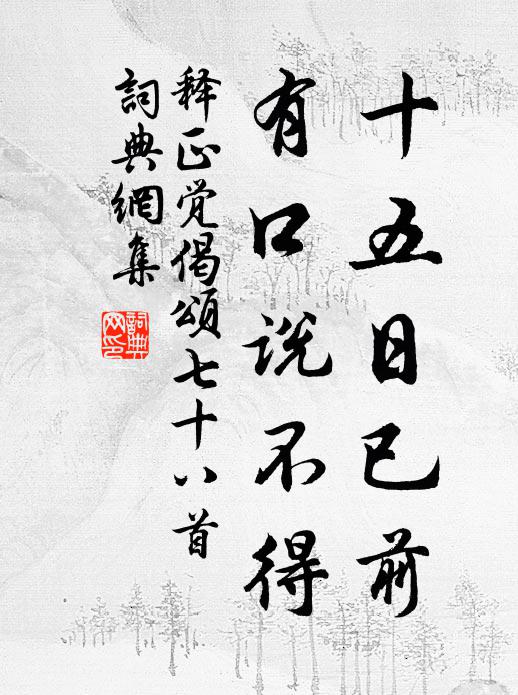 十五日已前
有口说不得
释正觉偈颂七十八首
詞典網集
詞典网印